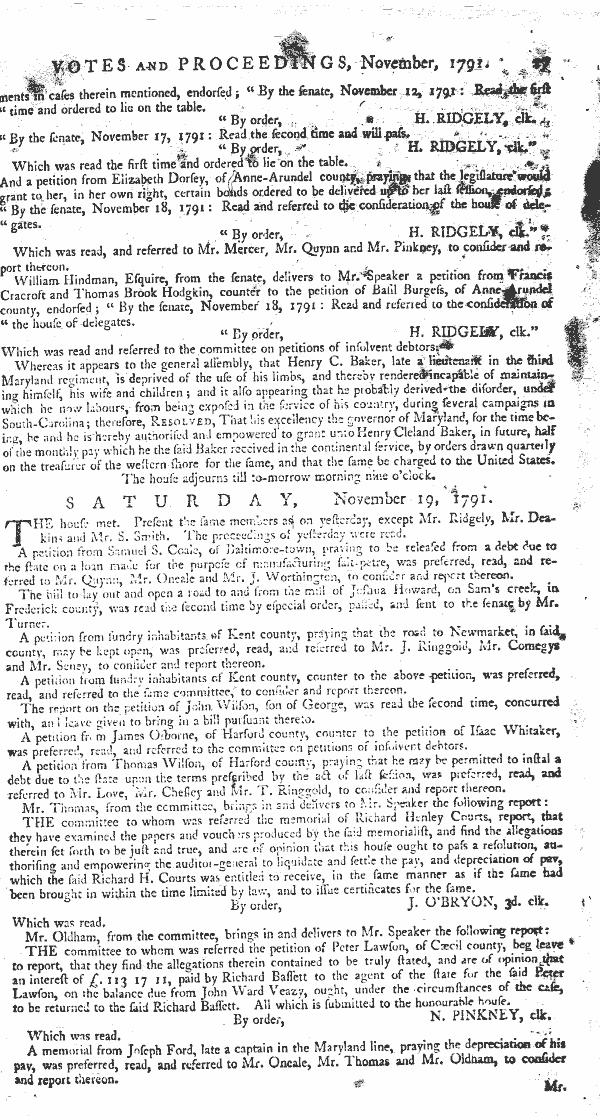 VOTES AND PROCEEDINGS, November, 1791.
ments in caſes therein mentioned, endorſed; “ By the ſenate, November 12, 1791: Read the firſt
“ time and ordered to lie on the table.
“ By order, H. RIDGELY, clk.
“ By the ſenate, November 17, 1791: Read the ſecond time and will paſs.
“ By order, H. RIDGELY, clk.”
Which was read the firſt time and ordered to lie on the table.
And a petition from Elizabeth Dorſey, of Anne-Arundel county, praying that the legiſlature would
grant to her, in her own right, certain bonds ordered to be delivered up to her laſt ſeſſion, endorſed;
“ By the ſenate, November 18, 1791: Read and referred to the conſideration of the houſe of dele-
“ gates.
“ By order, H. RIDGELY, clk.”
Which was read, and referred to Mr. Mercer, Mr. Quynn and Mr. Pinkney, to conſider and re-
port thereon.
William Hindman, Eſquire, from the ſenate, delivers to Mr. Speaker a petition from Francis
Cracroft and Thomas Brook Hodgkin, counter to the petition of Baſil Burgeſs, of Anne-Arundel
county, endorſed; “ By the ſenate, November 18, 1791: Read and referred to the conſideration of
“ the houſe of delegates.
“ By order, H. RIDGELY, clk.”
Which was read and referred to the committee on petitions of inſolvent debtors.
Whereas it appears to the general aſſembly, that Henry C. Baker, late a lieutenant in the third
Maryland regiment, is deprived of the uſe of his limbs, and thereby rendered incapable of maintain-
ing himſelf, his wife and children; and it alſo appearing that he probably derived the diſorder, under
which he now labours, from being expoſed in the ſervice of his country, during ſeveral campaigns in
South-Carolina; therefore, RESOLVED, That his excellency the governor of Maryland, for the time be-
ing, be and he is hereby authoriſed and empowered to grant unto Henry Cleland Baker, in future, half
of the monthly pay which he the ſaid Baker received in the continental ſervice, by orders drawn quarterly
on the treaſurer of the weſtern ſhore for the ſame, and that the ſame be charged to the United States.
The houſe adjourns till to-morrow morning nine o’clock.
SATURDAY, November 19, 1791.
THE houſe met. Preſent the ſame members as on yeſterday, except Mr. Ridgely, Mr. Dea-
kins and Mr. S. Smith. The proceedings of yeſterday were read.
A petition from Samuel S. Coale, of Baltimore-town, praying to be releaſed from a debt due to
the ſtate on a loan made for the purpoſe of manufacturing ſalt-petre, was preferred, read, and re-
ferred to Mr. Quynn, Mr. Oneale and Mr. J. Worthington, to conſider and report thereon.
The bill to lay out and open a road to and from the mill of Joſhua Howard, on Sam’s creek, in
Frederick county, was read the ſecond time by eſpecial order, paſſed, and ſent to the ſenate by Mr.
Turner.
A petition from ſundry inhabitants of Kent county, praying that the road to Newmarket, in ſaid
county, may be kept open, was preferred, read, and referred to Mr. J. Ringgold, Mr. Comegys
and Mr. Seney, to conſider and report thereon.
A petition from ſundry inhabitants of Kent county, counter to the above petition, was preferred,
read, and referred to the ſame committee, to conſider and report thereon.
The report on the petition of John Wilſon, ſon of George, was read the ſecond time, concurred
with, and leave given to bring in a bill purſuant thereto.
A petition from James Oſborne, of Harford county, counter to the petition of Iſaac Whitaker,
was preferred, read, and referred to the committee on petitions of inſolvent debtors.
A petition from Thomas Wilſon, of Harford county, praying that he may be permitted to inſtal a
debt due to the ſtate upon the terms preſcribed by the act of laſt ſeſſion, was preferred, read, and
referred to Mr. Love, Mr. Cheſley and Mr. T. Ringgold, to conſider and report thereon.
Mr. Thomas, from the committee, brings in and delivers to Mr. Speaker the following report:
THE committee to whom was referred the memorial of Richard Henley Courts, report, that
they have examined the papers and vouchers produced by the ſaid memorialiſt, and find the allegations
therein ſet forth to be juſt and true, and are of opinion that this houſe ought to paſs a reſolution, au-
thoriſing and empowering the auditor-general to liquidate and ſettle the pay, and depreciation of pay,
which the ſaid Richard H. Courts was entitled to receive, in the ſame manner as if the ſame had
been brought in within the time limited by law, and to iſſue certificates for the ſame.
By order, J. O’BRYON, 3d. clk.
Which was read.
Mr. Oldham, from the committee, brings in and delivers to Mr. Speaker the following report:
THE committee to whom was referred the petition of Peter Lawſon, of Cæcil county, beg leave
to report, that they find the allegations therein contained to be truly ſtated, and are of opinion that
an intereſt of £. 113 17 11, paid by Richard Baſſett to the agent of the ſtate for the ſaid Peter
Lawſon, on the balance due from John Ward Veazy, ought, under the circumſtances of the caſe,
to be returned to the ſaid Richard Baſſett. All which is ſubmitted to the honourable houſe.
By order, N. PINKNEY, clk.
Which was read.
A memorial from Joſeph Ford, late a captain in the Maryland line, praying the depreciation of his
pay, was preferred, read, and referred to Mr. Oneale, Mr. Thomas and Mr. Oldham, to conſider
and report thereon.
Mr.